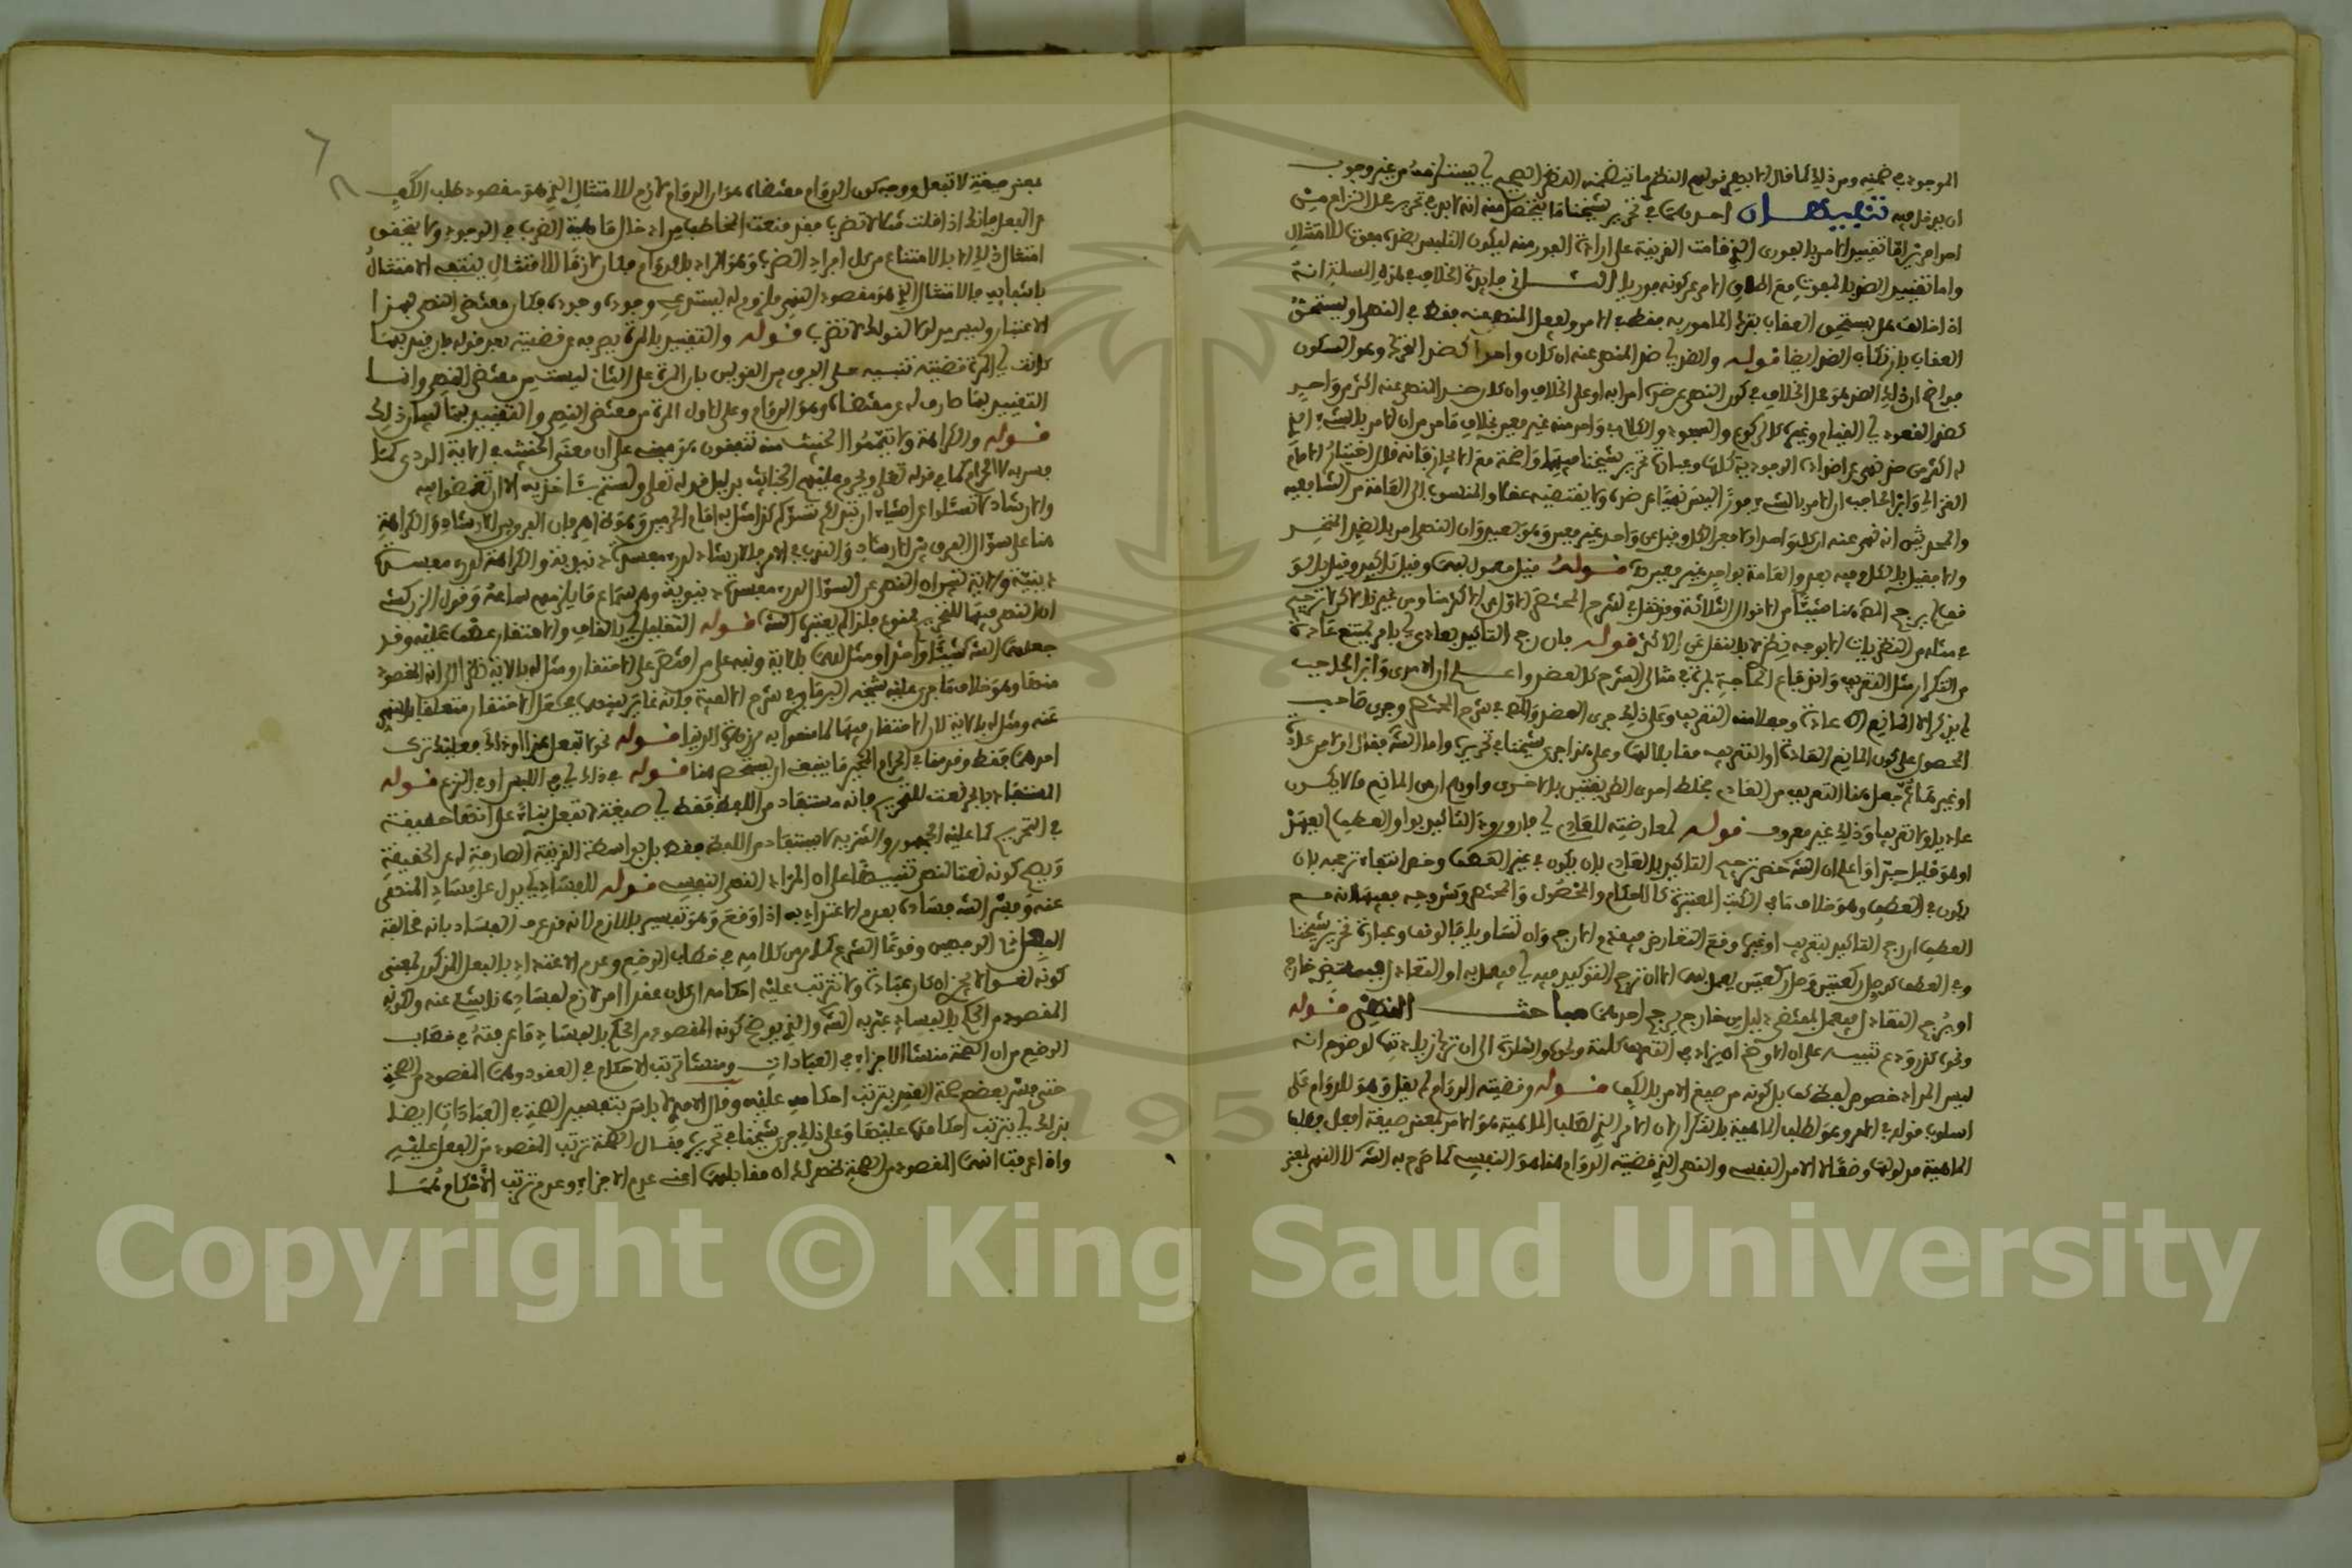 الموجود في ضمنه ومن ذلك كما قال الابدي قولهم النظم ما تتضمنه النظر الصحيح اي يستلزمه من غير وجوب
ان يدخل فيه تنبيهان احدهما في تحرير شيخنا ما يتخلص منه انه لابد في تحرير محل النزاع من
امرا من تراقا تقييد الامر بالفوري الذي قامت القرينة على ارادة الفور منه ليكون التلبس بضده مفوتا للامتثال
واما تقييد الضد بالمفوت مع اطلاق الامر عن كونه فوريا الثاني فايدة الخلاف في هذه المسئلة انه
اذا خالف هل يستحق العقاب بترك المامور به فقط في الامر وبفعل المنهي عنه فقط في النهي او يستحق
العقاب بارتكاب الضد ايضا قوله والضد اي ضد المنهي عنه ان كان واحدا كضد التحرك وهو السكون
فواضح ان ذلك الضد هو محل الخلاف في كون النهي عن ضده امرا به او على الخلاف وان كان ضد المنهي عنه اكثر من واحد
كضد القعود اي القيام وغيره كالركوع والسجود والكلام واحد منه غير معين بخلاف ما مر من ان الامر بالشيء الذي
له اكثر من ضد نهي عن اضداده الوجودية كلها وعبارة تحرير شيخنا فيها واضحة مع الايجاز فانه قال اختيار الامام
الغزالي وابن الحاجب ان الامر بالشيء فورا ليس نهيا عن ضده ولا يقتضيه عقلا والمنسوب الى العامة من الشافعية
والمحدثين انه نهي عنه ان كان واحدا والا فعن الكل وقيل عن واحد غير معين وهو بعيد وان النهي امر بالضد المتحد
والا فقيل بالكل وفيه بعد والعامة بواحد غير معين قوله قيل معمول بهما وقيل تاكيد وقيل بالوقف
فعلى يرجح المص هنا شيئا من الاقوال الثلاثة وقد نقل في شرح المختصر الاول عن الاكثر هنا ومن غير
في مثله من النظريات الا بوجه نظر لا بالنقل عن الاكثر قوله فان رجح التاكيد بعادي اي بامر يمتنع عادة
من التكرار مثل التعريف واندفاع الحاجة بمرة في مثالي الشرح كل العضد واعلم ان الامدي وابن الحاجب
لم يذكرا الا المانع عادة وجعلا منه التعريف وعلى ذلك جرى العضد والمص في شرح المختصر وجرى صاحب
الحصول على كون المانع العادة او التعريف مقابلا لها وعلى هذا جرى شيخنا في تحريره واما الشه فقال
او غير هما ثم جعل هنا التعريف من العادي فخلط احدى الطريقتين بالاخرى واوهم ان من المانع ما لا يكون
عاديا ولا تعريفا وذلك غير معروف قوله لمعارضته للعادي اي فان ورود التاكيد بواو العطف لم يعهد
او هو قليل جدا واعلم ان الشه خص ترجيح التاكيد بالعادي بان يكون في غير العطف وخص انتفاء ترجيحه بان
يكون في العطف وهو خلاف ما في الكتب المعتبرة كالاحكام والمحصول والمختصر وشروحه
العطف ان رجح التاكيد بتعريف او غيره وقع التعارض فيقدم الارجح وان تساويا فالوقف وعبارة تحرير شيخنا
وفي العطف كوصل ركعتين وصل ركعتين يعمل بهما الا ان ترجح التوكيد فيه اي فيعمل به او التعادل فبمقتضى خارج
او يرجح التعادل فيعمل بمقتضى دليل من خارج يرجح احدهما مباحث النهي قوله
ونحو كذر ودع تنبيه على انه الاوضح ان يزاد في
ليس المراد خصوص لفظ كف بل كونه من صيغ الامر بالكف قوله وقضيته الدوام لم يقل وهو للدوام على
اسلوب قوله في الامر وهو لطلب الماهية بالتكرار لان الامر الذي لطلب الماهية هو الامر بمعنى صيغة افعل وطلب
الماهية مدلولها وضعا لا الامر النفسي والنهي الذي قضيته الدوام هنا هو النفسي كما صرح به الشه لا النهي بمعنى
بمعنى صيغة لا تفعل ووجه كون الدوام مقتضاه هو ان الدوام لازم للامتثال الذي هو مقصود طلب الكف
عن الفعل فانك اذا قلت مثلا لا تضرب فقد منعت المخاطب من ادخال ماهية الضرب في الوجود ولا يتحقق
امتثال ذلك الا بالامتناع من كل افراد الضرب وهو المراد بالدوام فكان لازما للامتثال ينتفي الامتثال
بانتفايه فالامتثال الذي هو مقصود النهي ملزوم له يستدعي وجوده وجوده فكان مقتضى النهي بهذا
الاعتبار وليس مدلولا لقولك لا تضرب قوله والتقييد بالمرة يصرفه عن قضيته بعد قوله فان قيد بها
كانت اي المرة قضيته تنبيه على الفرق بين القولين بان المرة على الثاني ليست من مقتضى النهي وانما
التقييد بها صارف له عن مقتضاه وهو الدوام وعلى الاول المرة من مقتضى النهي والتقييد بها لبيان ذلك
قوله والكراهة ولا تيمموا الخبيث منه تنفقون هو مبني على ان معنى الخبيث في الاية الردي كما
فسر به لا الحرام كما في قوله تعلى ويحرم عليهم الخبائث بدليل قوله تعلى ولستم بئاخذيه الا ان تغمضوا فيه
والارشاد لا تسئلوا عن اشياء ان تبد لكم تسؤكم كذا مثل به امام الحرمين وهو ظاهر فان الفرق بين الارشاد والكراهة
هنا على منوال الفرق بين الارشاد والندب في الامر فالارشاد لدرء مفسدة دنيوية والكراهة لدرء مفسدة
دينية والاية تفهم ان النهي عن السؤال لدرء مفسدة دنيوية وهي سماع ما يلزم من سماعه وقول الزركشي
ان النهي فيها للتحريم ممنوع فلذا لم يعتبره الشه قوله التقليل اي بالقاف والاحتقار عطف عليه وقد
جعلهما الشه شيئا واحدا ومثل لهما بالاية ونبه على من اقتصر على الاحتقار ومثل له بالاية نظرا الى انه المقصود
منها وهو خلاف ما جرى عليه شيخه البرماوي في شرح الالفية فانه غاير بينهما فجعل الاحتقار متعلقا بالمنهي
عنه ومثل له بالاية لان الاحتقار فيها لما متعوا به من زهرة الدنيا قوله نحو لا تفعل هذا او ذاك فعليه ترك
احدهما فقط وقد مضى في الحرام المخير ما ينبغي ان يستحضر هنا قوله في ذلك اي في اللبس او في النزع قوله
المستفاد بالجر نعت للتحريم فانه مستفاد من اللفظ فقط اي صيغة لا تفعل بناء على انها حقيقة
في التحريم كما عليه الجمهور والتنزيه لا يستفاد من اللفظ فقط بل بواسطة القرينة الصارفة له عن الحقيقة
ويصح كونه نعتا للنهي تنبيها على ان المراد النهي النفسي قوله للفساد اي يدل على فساد المنهي
عنه وفسر الشه فساده بعدم الاعتداد به اذا وقع وهو تفسير باللازم لانه قد عرف الفساد بانه مخالفة
الفعل ذي الوجهين وقوعا الشرع كما مر من كلامه في خطاب الوضع وعدم الاعتداد بالفعل المذكور بمعنى
كونه لغوا لا يجزء ان كان عبادة ولا تترتب عليه احكامه ان كان عقدا امر لازم لفساده ناشئ عنه ولكونه
المقصود من الحكم بالفساد عبر به الشه والذي يوضح كونه المقصود من الحكم بالفساد ما عرفته في خطاب
الوضع من ان الصحة منشا الاجزاء في العبادات ومنشا ترتب الاحكام في العقود وهما المقصود من الصحة
حتى فسر بعضهم صحة العقد بترتب احكامه عليه وقال الامدي لا باس بتفسير الصحة في العبادات ايضا
بذلك اي بترتب احكامها عليها وعلى ذلك جرى شيخنا في تحريره فقال الصحة ترتب المقصود من الفعل عليه
واذا عرفت انهما المقصود من الصحة ظهر لك ان مقابلهما اعني عدم الاجزاء وعدم ترتب الاحكام هما